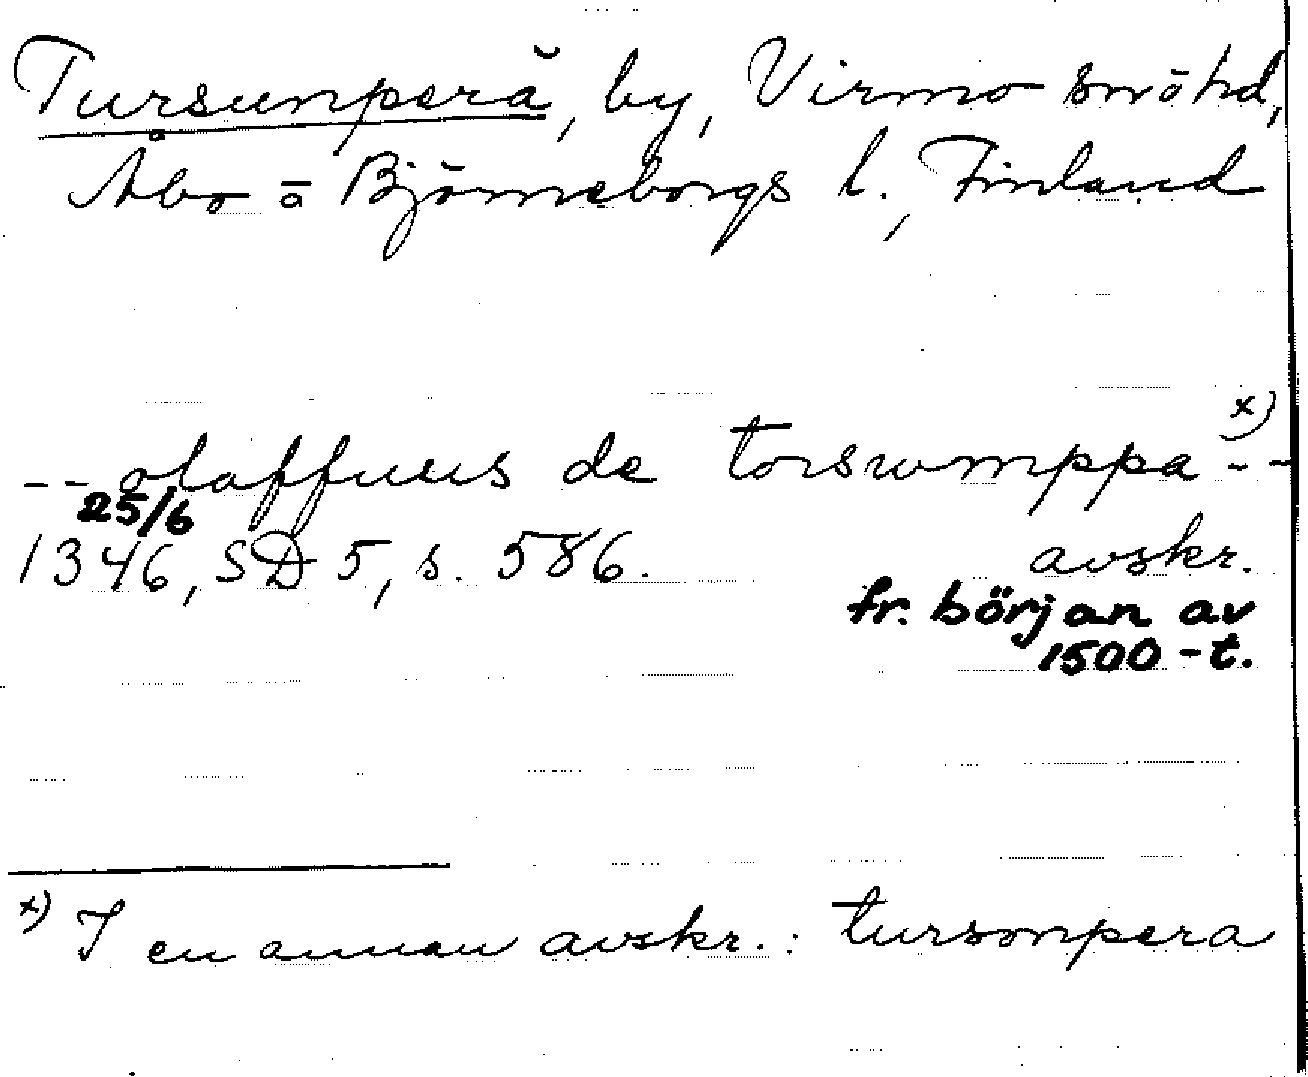 Tursunperä, by, Virmo snöhd,
Åbo o Björneborgs l., Finland
-- olaffuus de torswmppa x) --
25/6
1346, SD 5, s. 586. avskr.
fr. början av
1500-t.
x) I en annan avskr.: tursonpera